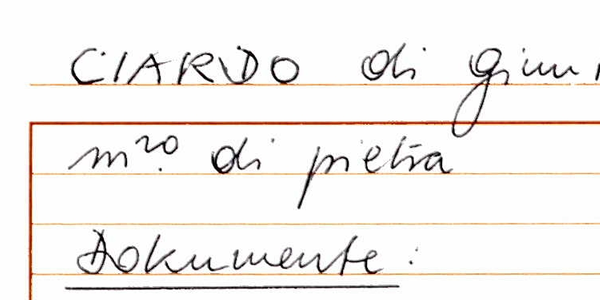 CIARDO di
m.ro di pietra
Dokumente: